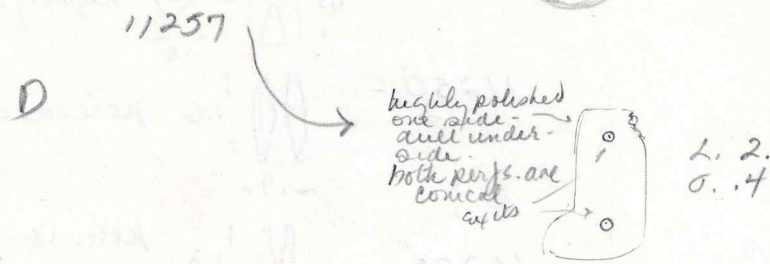 11257
D
highly polished
one side -
dull under-
side.
both perfs. are
conical
exits
L. 2.
σ. .4